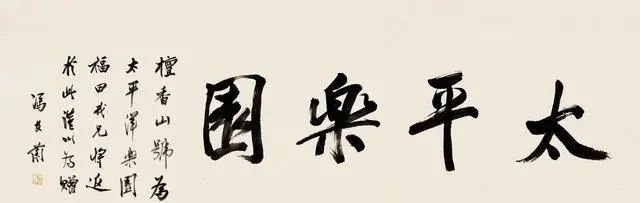 太平樂園
檀香山號為
太平洋樂園
福田我兄將返
於此謹以為贈
馮友蘭